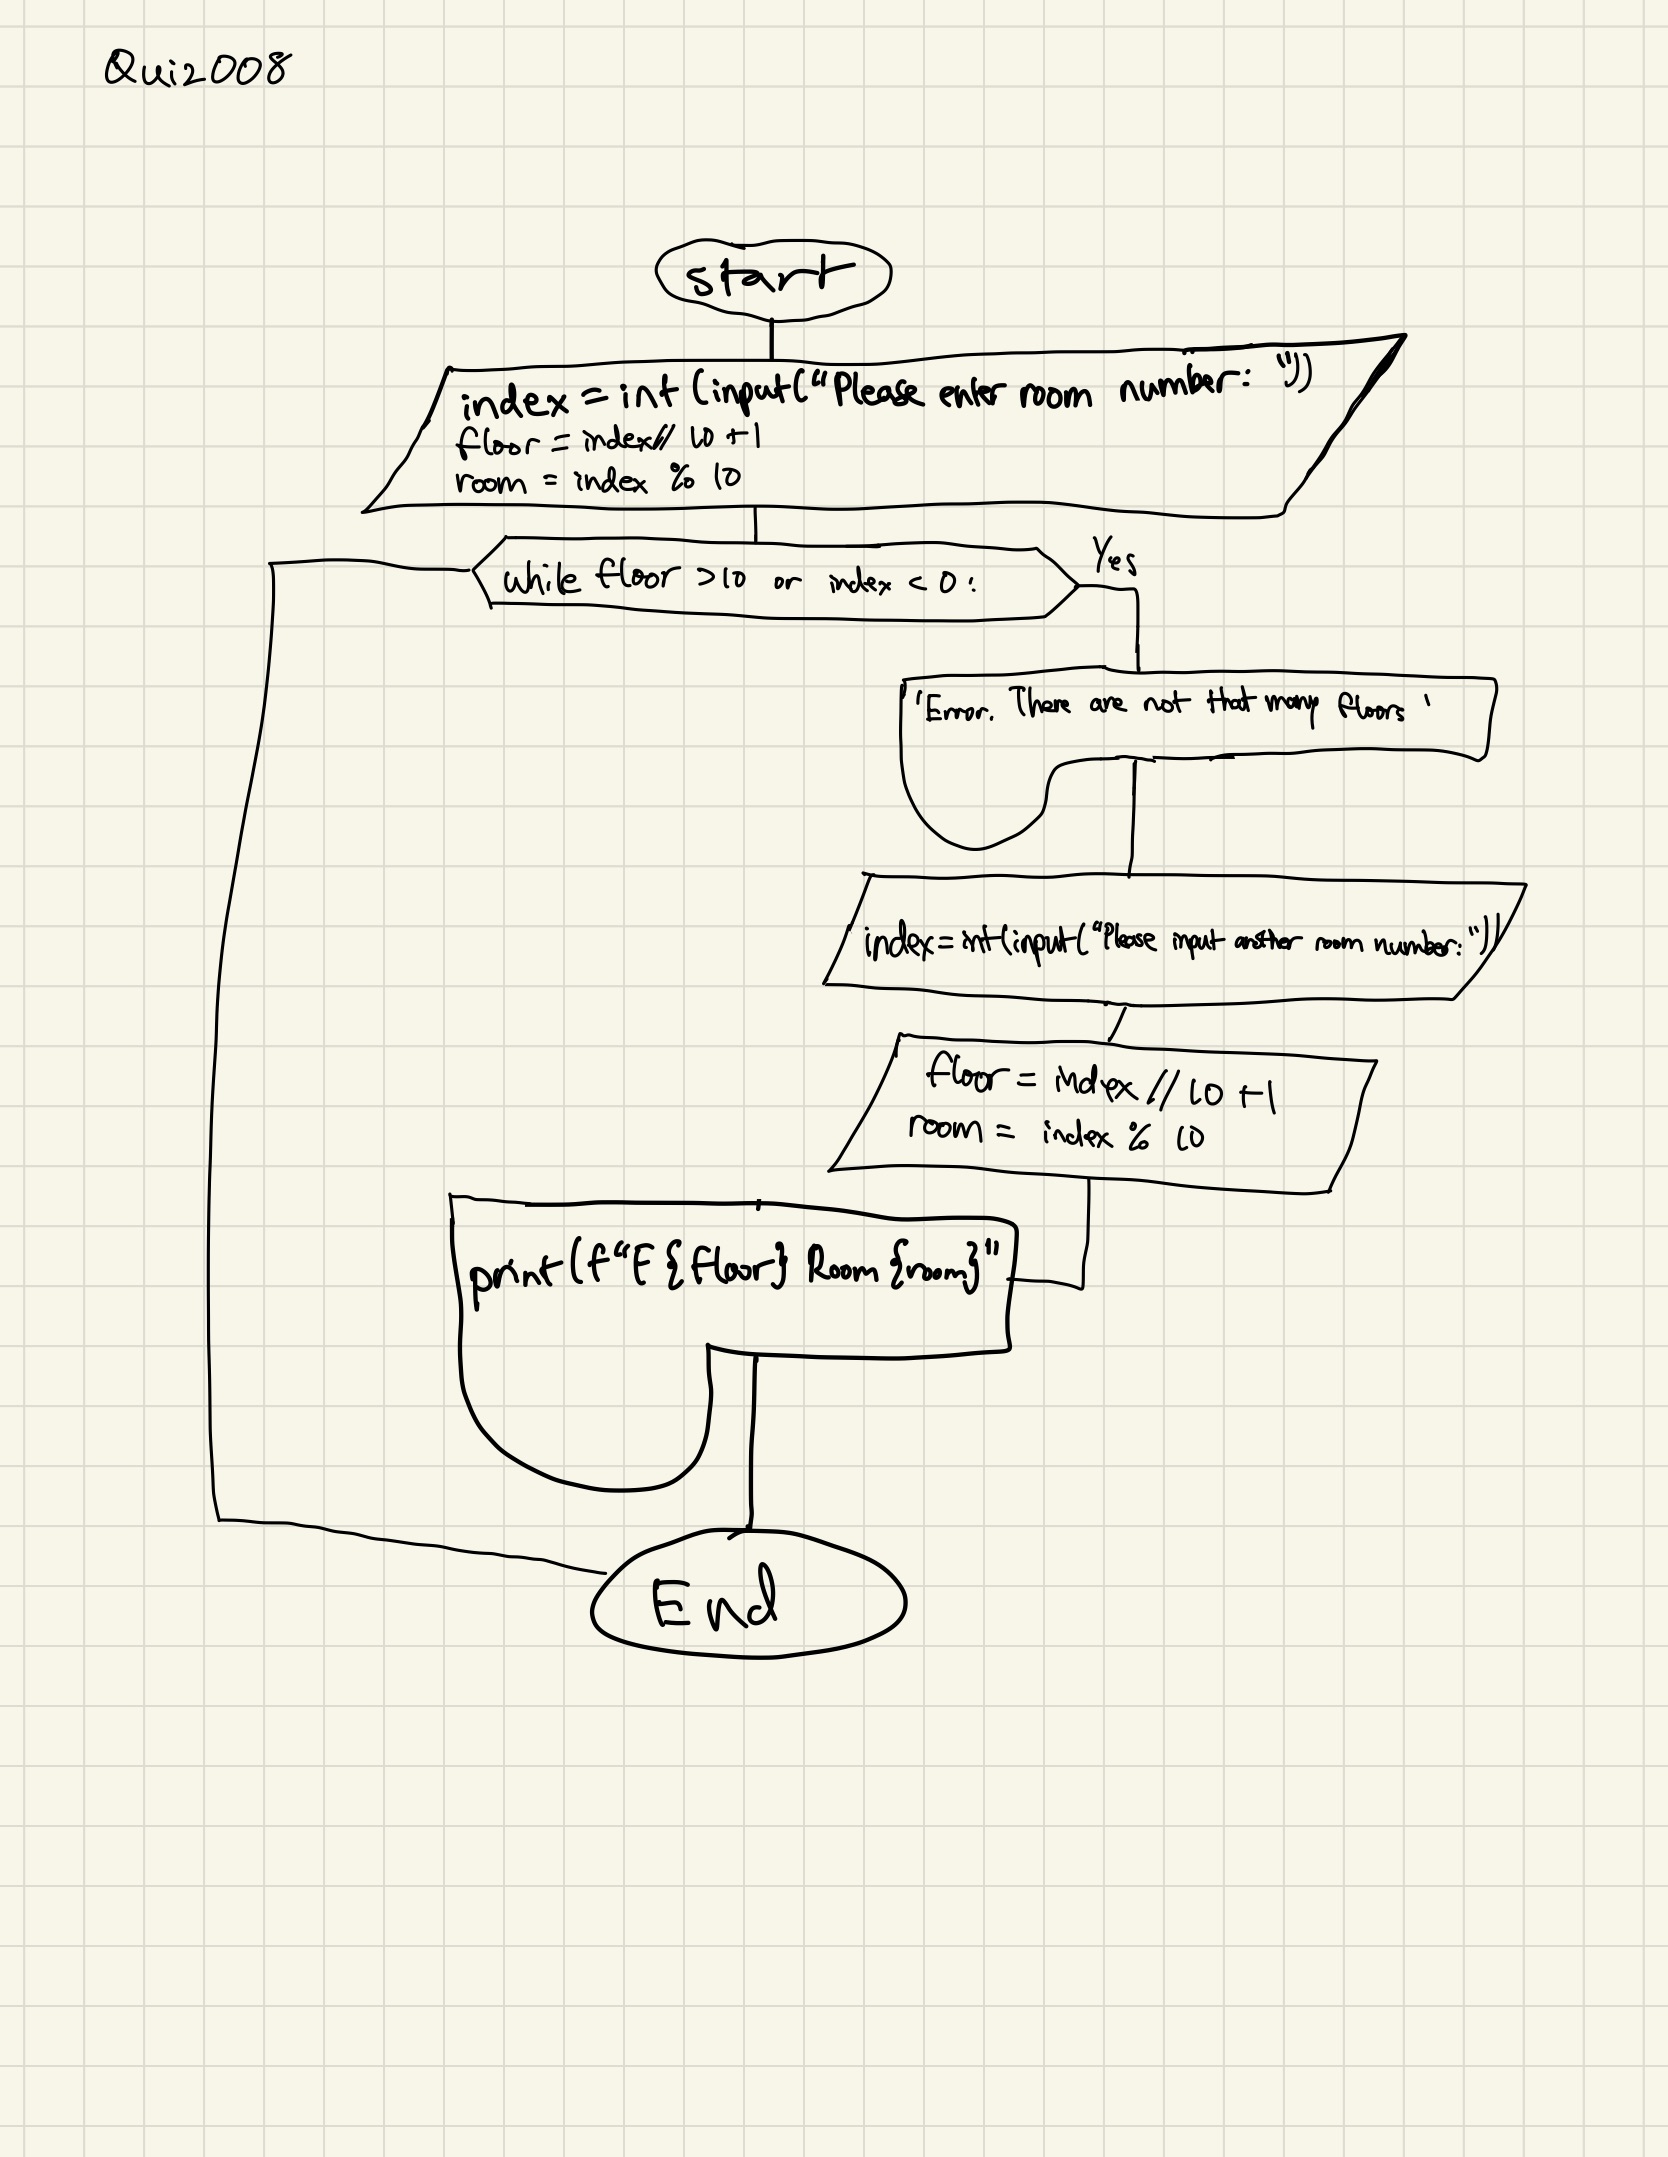 Quiz008
start
index = int (input("Please enter room number: "))
floor = index// 10 +1
room = index % 10
while floor >10 or index < 0 :
Yes
'Error. There are not that many floors '
index = int(input("Please input another room number: "))
floor = index // 10 +1
room = index % 10
print (f"F {floor} Room {room}"
End